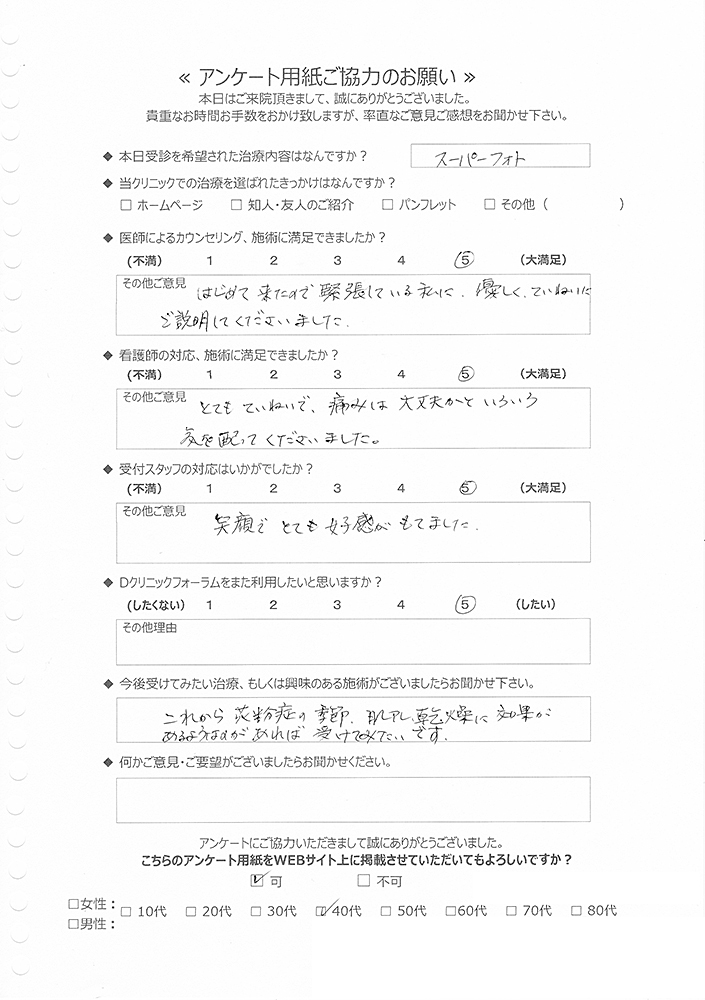 ≪ アンケート用紙ご協力のお願い ≫
本日はご来院頂きまして、誠にありがとうございました。
貴重なお時間お手数をおかけ致しますが、率直なご意見ご感想をお聞かせ下さい。
◆ 本日受診を希望された治療内容はなんですか？ スーパーフォト
◆ 当クリニックでの治療を選ばれたきっかけはなんですか？
□ ホームページ □ 知人・友人のご紹介 □ パンフレット □ その他（ ）
◆ 医師によるカウンセリング、施術に満足できましたか？
(不満) 1 2 3 4 5 (大満足)
その他ご意見 はじめて来たので緊張している私に、優しく、ていねいに
ご説明してくださいました.
◆ 看護師の対応、施術に満足できましたか？
(不満) 1 2 3 4 5 (大満足)
その他ご意見 とてもていねいで、痛みは大丈夫かといろいろ
気を配ってくださいました。
◆ 受付スタッフの対応はいかがでしたか？
(不満) 1 2 3 4 5 (大満足)
その他ご意見 笑顔でとても好感がもてました.
◆ Dクリニックフォーラムをまた利用したいと思いますか？
(したくない) 1 2 3 4 5 (したい)
その他理由
◆ 今後受けてみたい治療、もしくは興味のある施術がございましたらお聞かせ下さい。
これから花粉症の季節、肌アレ、乾燥に効果が
あるようなのがあれば受けてみたいです.
◆ 何かご意見・ご要望がございましたらお聞かせください。
アンケートにご協力いただきまして誠にありがとうございました。
こちらのアンケート用紙をWEBサイト上に掲載させていただいてもよろしいですか？
☑ 可 □ 不可
□女性：
□ 10代 □ 20代 □ 30代 ☑ 40代 □ 50代 □60代 □ 70代 □ 80代
□男性：